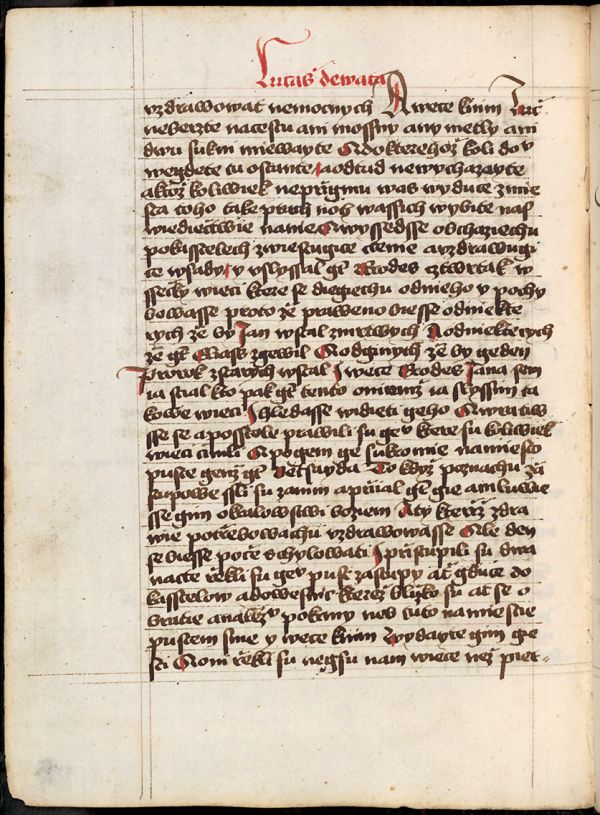 Lucas dewata
vzdrawowat nemocnych A wece knim Nic
neberzte nacestu ani mossny any metly ani
dwu sukni miewayte A do kterehoz koli do v
wegdete tu ostante a odtud newychazayte
a ktoz koliwiek neprigmu was wyduce z mie
sta toho take prach nog wassich wybite nas
wiedieczwie nanie A wyssedsse obchaziechu
po kasstelech zwiestugice ctenie a vzdrawugi
ce wsady y vslyssal gt Erodes cztwrtak w
sseczky wieci ktere se diegiechu odnieho y pochy
bowasse proto ze praweno biesse odniekte
rych ze by Jan wstal zmrtwych A odniekterych
ze gt Elias zgewil A odginych ze by geden
Prorok zstarych wstal J wece Erodes Jana sem
ia stial kto pak gt tento oniemz ia slyssim ta
kowe wieci J hledasse widieti geho A wratiw
sse se apposstole prawili su gev ktere su koliwiek
wieci cinili A pogem ge sukromie na miesto
puste genz gt Betsayda To kdyz poznachu za
stupowe ssli su zanim a prigal gt gie a mluwie
sse gim o kralowstwi boziem A ty kteriz zdra
wie potrebowachu vzdrawowasse Ale den
se biesse poce schylowati J pristupili su dwa
nacte rekli su gev pust zastupy at gduce do
kasstelow a do wesnic kterez blizko su at se o
bratie a nalezv pokrmy neb tuto na miestie
pustem sme y wece knim Wydayte gim ge
sti A oni rekli su negsu nam wiece nez piet